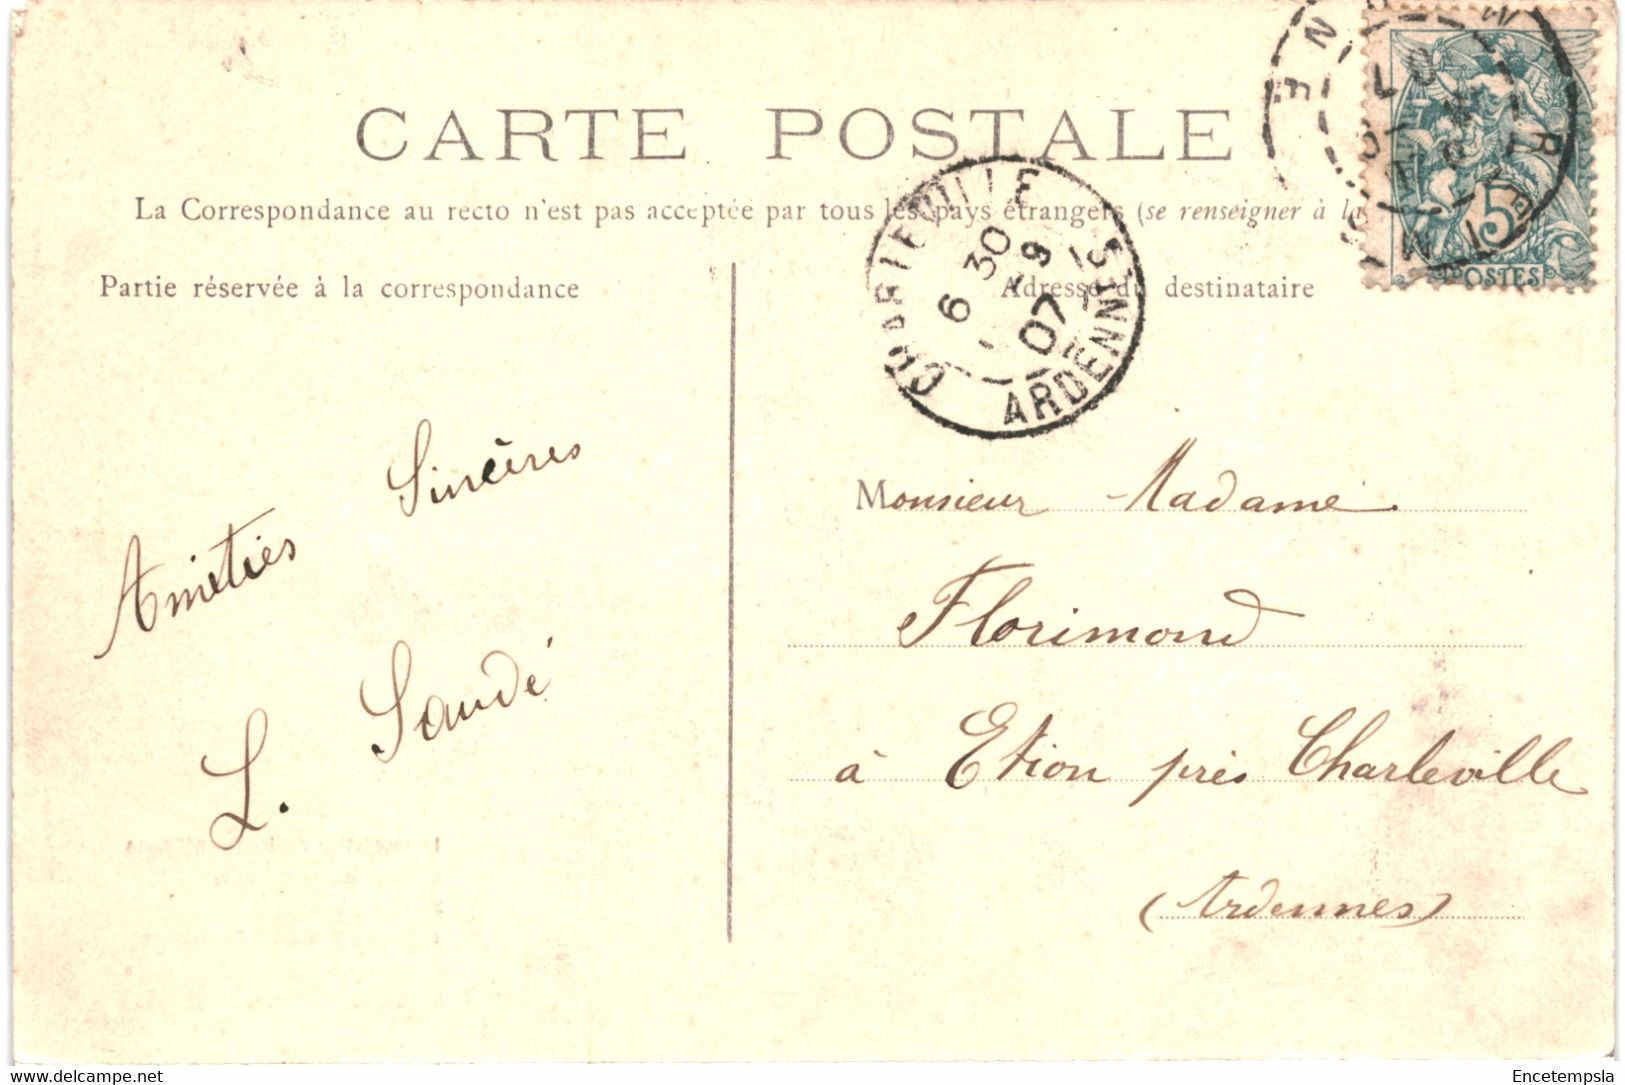 CARTE POSTALE
La Correspondance au recto n'est pas acceptée par tous les pays étrangers (se renseigner à la
Partie réservée à la correspondance
Adresse du destinataire
CHARLEVILLE
6 30
9
07
ARDENNES
5
POSTES
Amitiés Sincères
L. Saudé
Monsieur Madame
Florimond
à Etion près Charleville
(Ardennes)
delcampe.net
Encetempsla